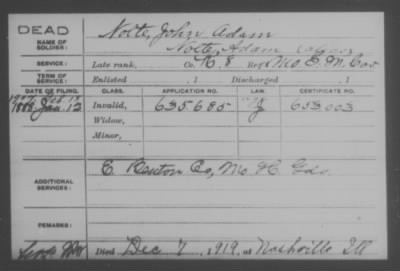 DEAD
NAME OF SOLDIER: Nolte, John Adam
Nolte, Adam (alias)
SERVICE: Late rank, Co. K. 8 Reg't Mo S. M. Cav
TERM OF SERVICE: Enlisted , 1 Discharged , 1
DATE OF FILING. CLASS. APPLICATION NO. LAW. CERTIFICATE NO.
Jan. 12 Invalid, 635685 653003
Widow,
Minor,
ADDITIONAL SERVICES: C. Benton Co, Mo. H. Gds.
REMARKS:
Died Dec 7, 1919, at Nashville Ill